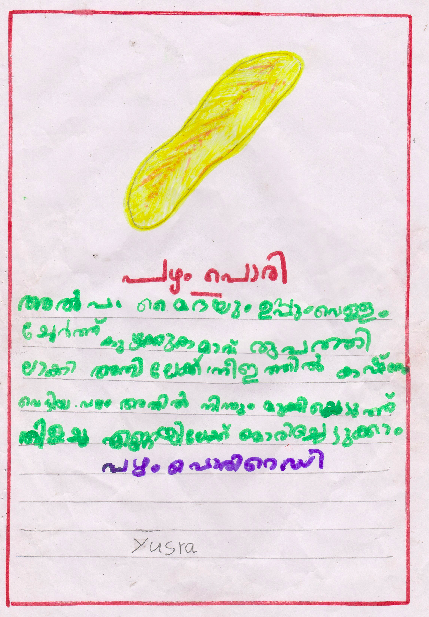 പഴം പൊരി
അൽപം മൈദയും ഉപ്പും വെള്ളം
ചേർത്ത് കുഴക്കുക മാവ് രൂപത്തി
ലാക്കി അതി ലേക്ക് നീളത്തിൽ
വെട്ടിയ പഴം അതിൽ നിന്നും മുക്കിയെടുത്ത്
തിളച്ച എണ്ണയിലേക്ക് പൊരിച്ചെടുക്കാം
പഴം പൊരി റെഡി
Yusra